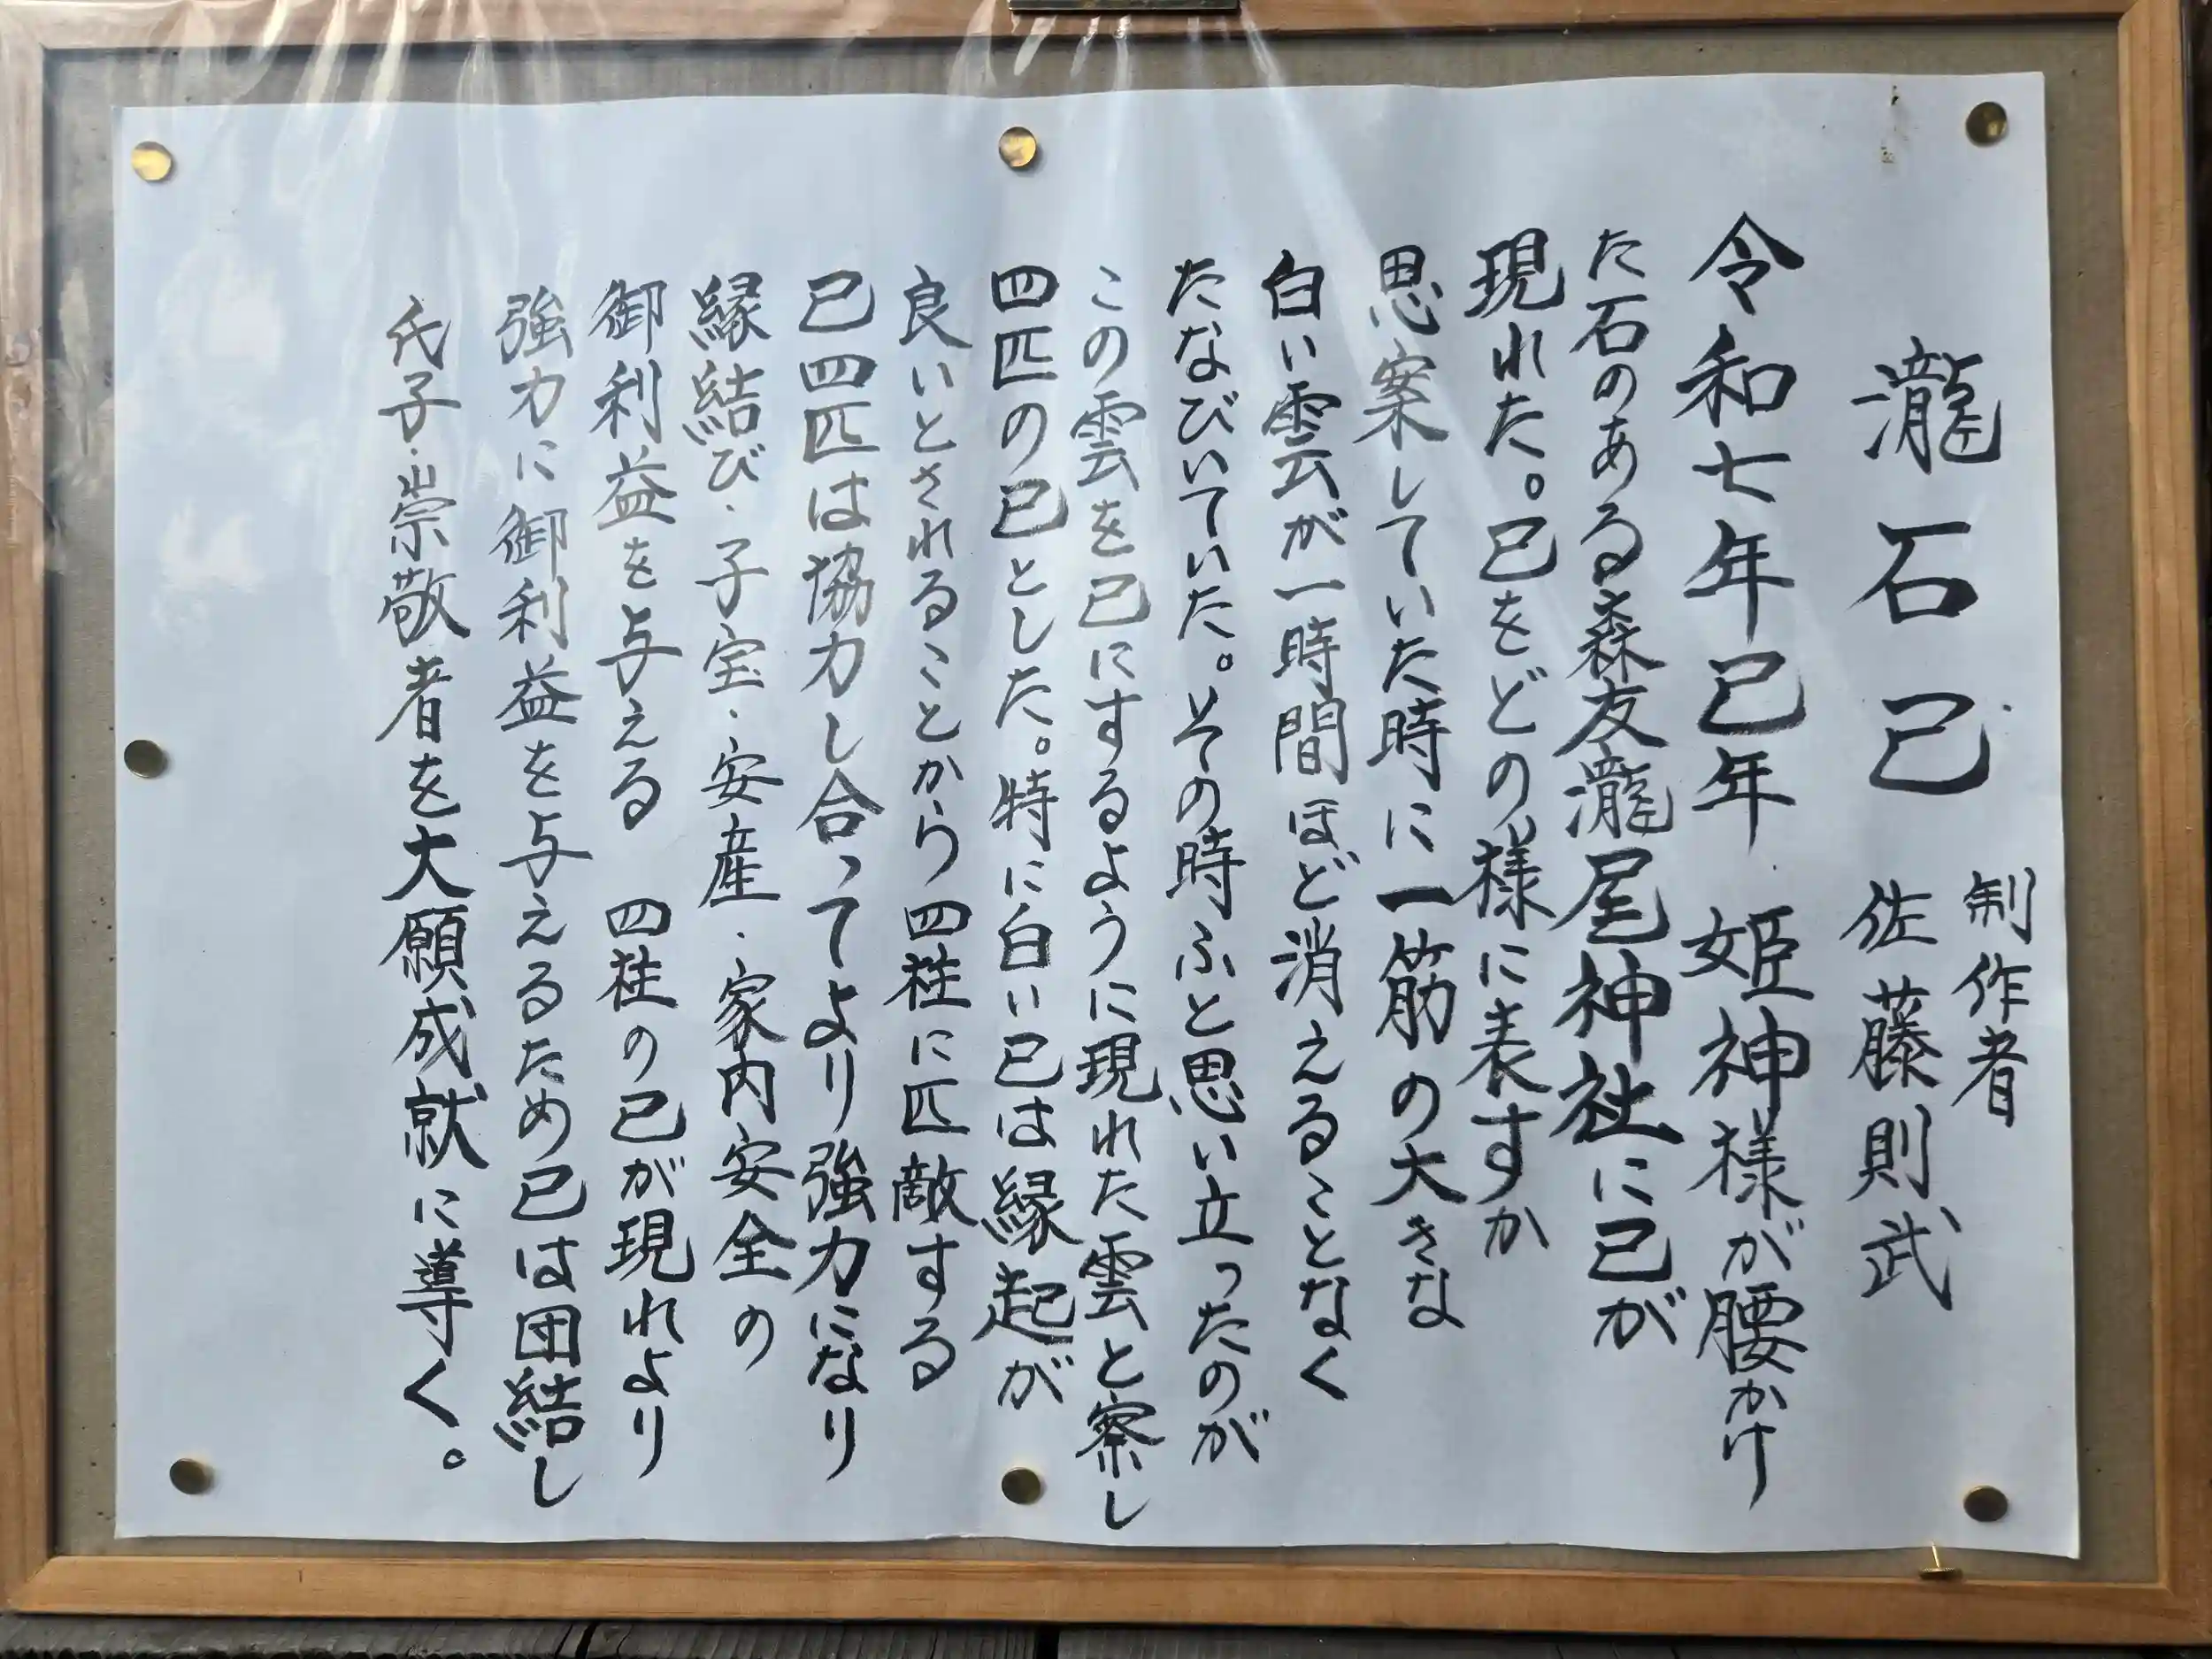 瀧石巳
制作者
佐藤則武
令和七年巳年 姫神様が腰かけ
た石のある森友瀧尾神社に巳が
現れた。巳をどの様に表すか
思案していた時に一筋の大きな
白い雲が一時間ほど消えることなく
たなびいていた。その時ふと思い立ったのが
この雲を巳にするように現れた雲と察し
四匹の巳とした。特に白い巳は縁起が
良いとされることから四柱に匹敵する
巳四匹は協力し合ってより強力になり
縁結び・子宝・安産・家内安全の
御利益を与える 四柱の巳が現れより
強力に御利益を与えるため巳は団結し
氏子・崇敬者を大願成就に導く。